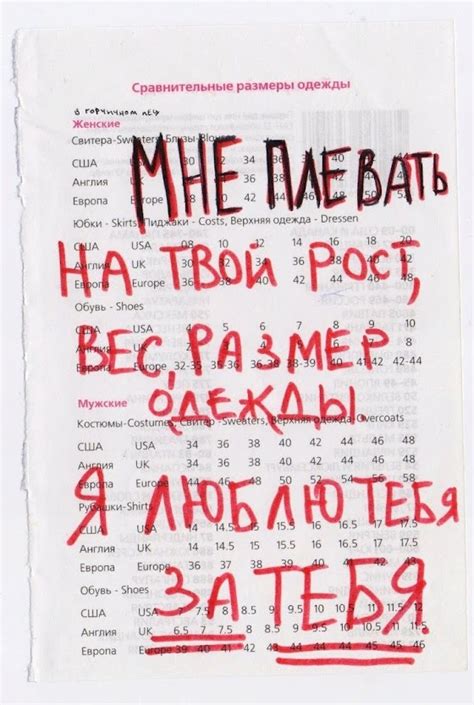 Сравнительные размеры одежды
в горчичном лесу
Женские
Свитера-Sweaters, Блузы-Blouses
МНЕ ПЛЕВАТЬ
США 30 32 34 36 38 40
Англия UK
Европа
Юбки - Skirts, Пиджаки - Costs, Верхняя одежда - Dressen
США USA 08 10 12 14 16 18 20
НА ТВОЙ РОСТ,
Англия UK
Европа Europe 36 38 40
Обувь - Shoes
США USA 4 5 6 7 8 9 10
ВЕС, РАЗМЕР
Англия UK
Европа Europe 32-35 35 36-38 38-39 40 41-42 42-44
ОДЕЖДЫ
Мужские
Костюмы-Costumes, Свитер -Sweaters, Верхняя одежда-Overcoats
США USA 34 36 38 40 42 44 46 48
Англия UK 34 36 38 40 42 44 46 48
Европа Europe 44 46 48 50 52 54 56 58
Рубашки-Shirts
Я ЛЮБЛЮ ТЕБЯ
США USA 14 14.5 15 15.5 16 16.5 17 17.5
Англия UK 14 14.5 15 15.5 16 16.5 17 17.5
Европа Europe 36 37 38 39 41 42 43
Обувь - Shoes
ЗА ТЕБЯ
США USA 7 7.5 8 8.5 9 9.5 10 10.5 11 11.5 12
Англия UK 6.5 7 7.5 8 8.5 9 9.5 10 10.5 11 11.5
Европа Europe 39 40 41 42 43 43 44 44 45 45 46